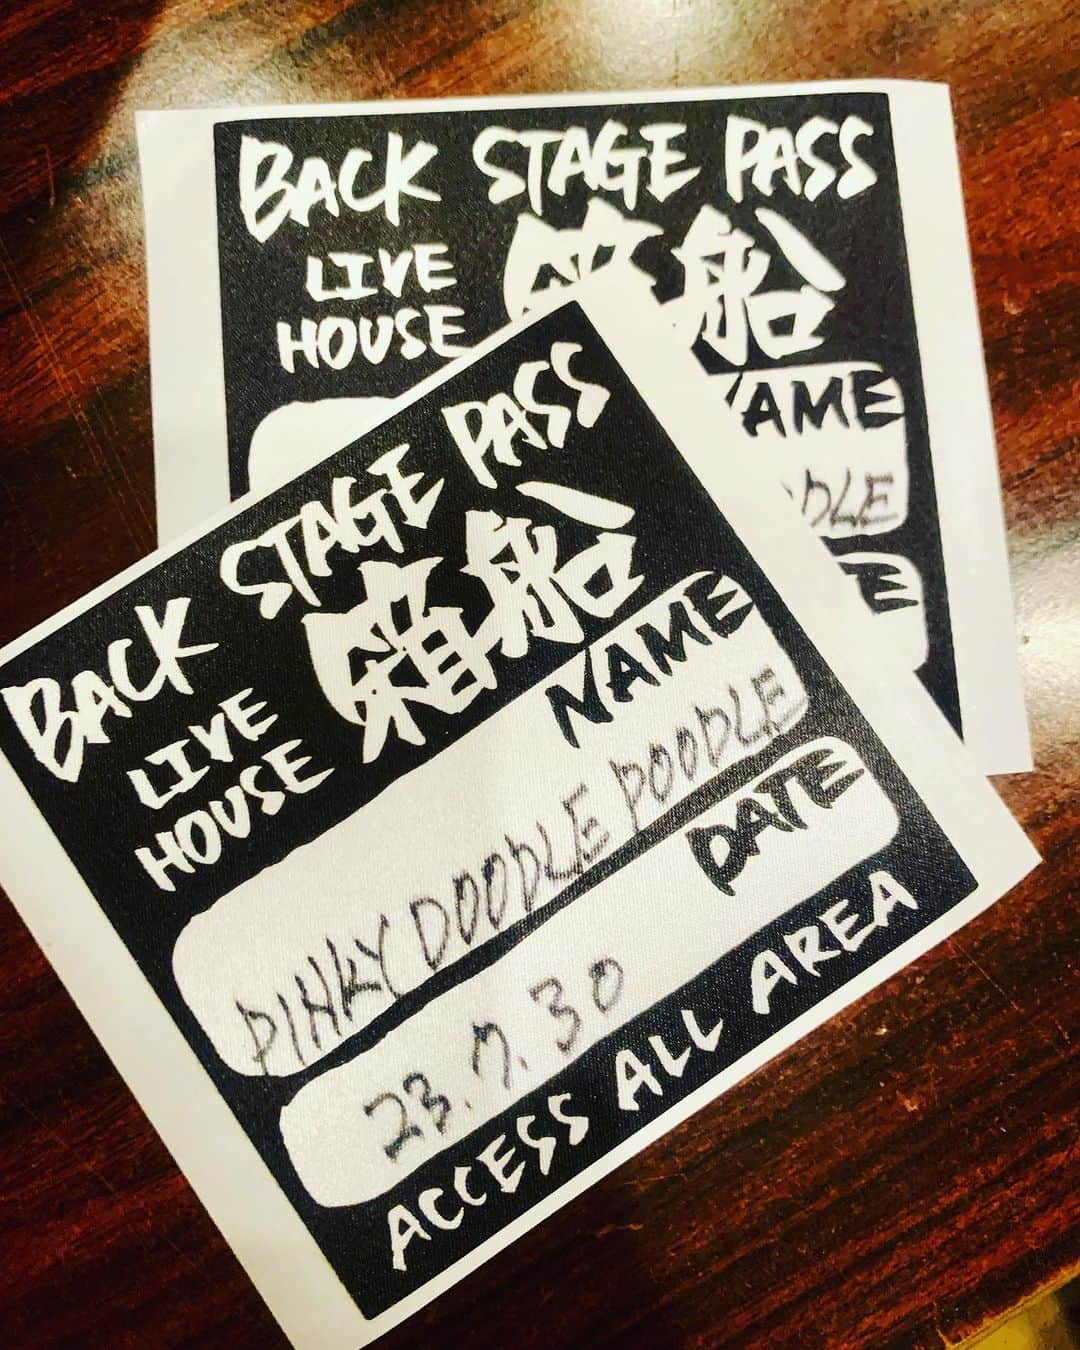 BACK STAGE PASS
LIVE
HOUSE
船
NAME
DLE
BACK STAGE PASS
LIVE
HOUSE
箱船
NAME
PINKY DOODLE POODLE
DATE
23.7.30
ACCESS ALL AREA